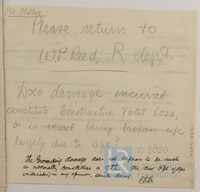 Please return to
W.P. Reed, R dept.
Does damage incurred
constitute Constructive Total Loss,
or is vessel being broken up
largely due to age?
The Grounding damage does not appear to be such
as normally constitutes a CTL
in my opinion,
© 2020